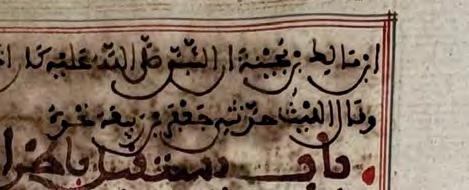 ابن مالك بن بحينة ان النبي صلى الله عليه كان
وقال الليث حدثني جعفر بن ربيعة نحوه
باب يستقبل باطرا